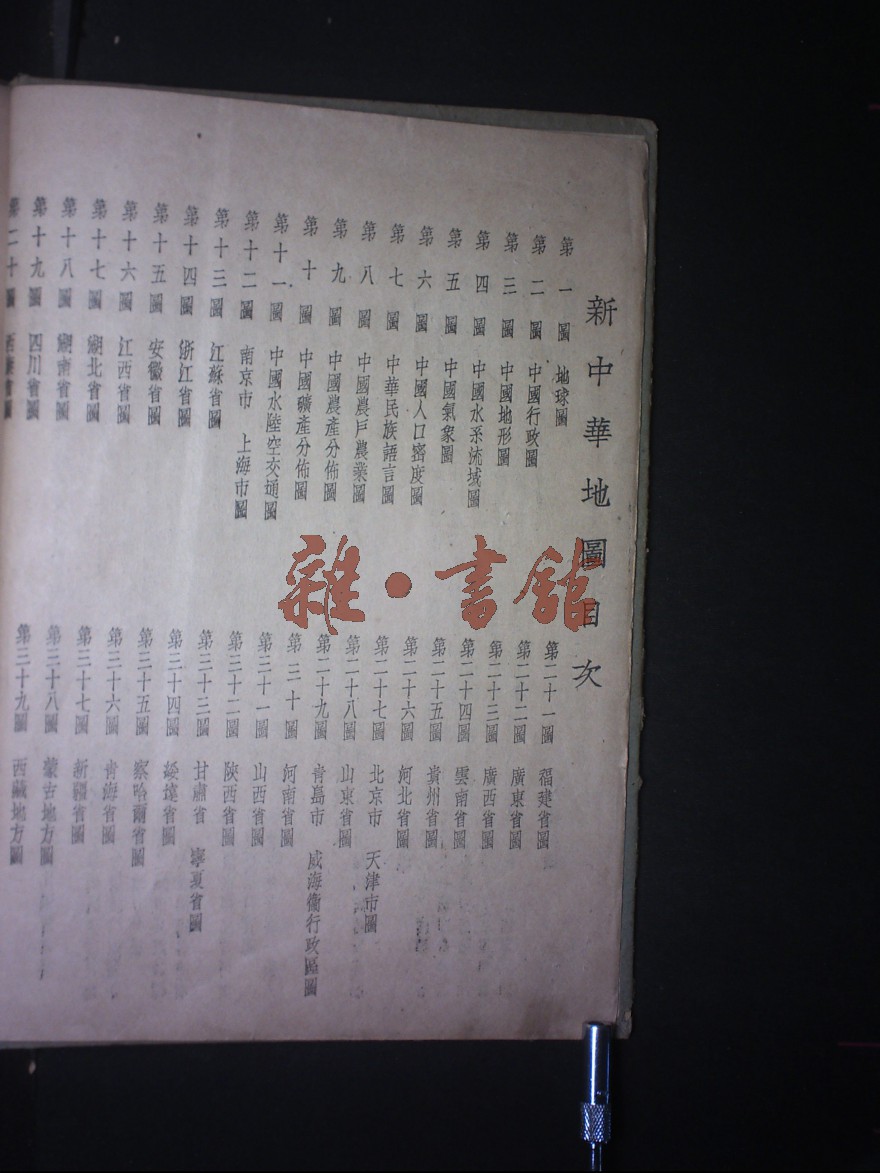 新中華地圖目次
第一圖 地球圖
第二圖 中國行政圖
第三圖 中國地形圖
第四圖 中國水系流域圖
第五圖 中國氣象圖
第六圖 中國人口密度圖
第七圖 中華民族語言圖
第八圖 中國農戶農業圖
第九圖 中國農產分佈圖
第十圖 中國礦產分佈圖
第十一圖 中國水陸空交通圖
第十二圖 南京市 上海市圖
第十三圖 江蘇省圖
第十四圖 浙江省圖
第十五圖 安徽省圖
第十六圖 江西省圖
第十七圖 湖北省圖
第十八圖 湖南省圖
第十九圖 四川省圖
第二十圖 西康省圖
第二十一圖 福建省圖
第二十二圖 廣東省圖
第二十三圖 廣西省圖
第二十四圖 雲南省圖
第二十五圖 貴州省圖
第二十六圖 河北省圖
第二十七圖 北京市 天津市圖
第二十八圖 山東省圖
第二十九圖 青島市 威海衛行政區圖
第三十圖 河南省圖
第三十一圖 山西省圖
第三十二圖 陝西省圖
第三十三圖 甘肅省 寧夏省圖
第三十四圖 綏遠省圖
第三十五圖 察哈爾省圖
第三十六圖 青海省圖
第三十七圖 新疆省圖
第三十八圖 蒙古地方圖
第三十九圖 西藏地方圖
雜·書館